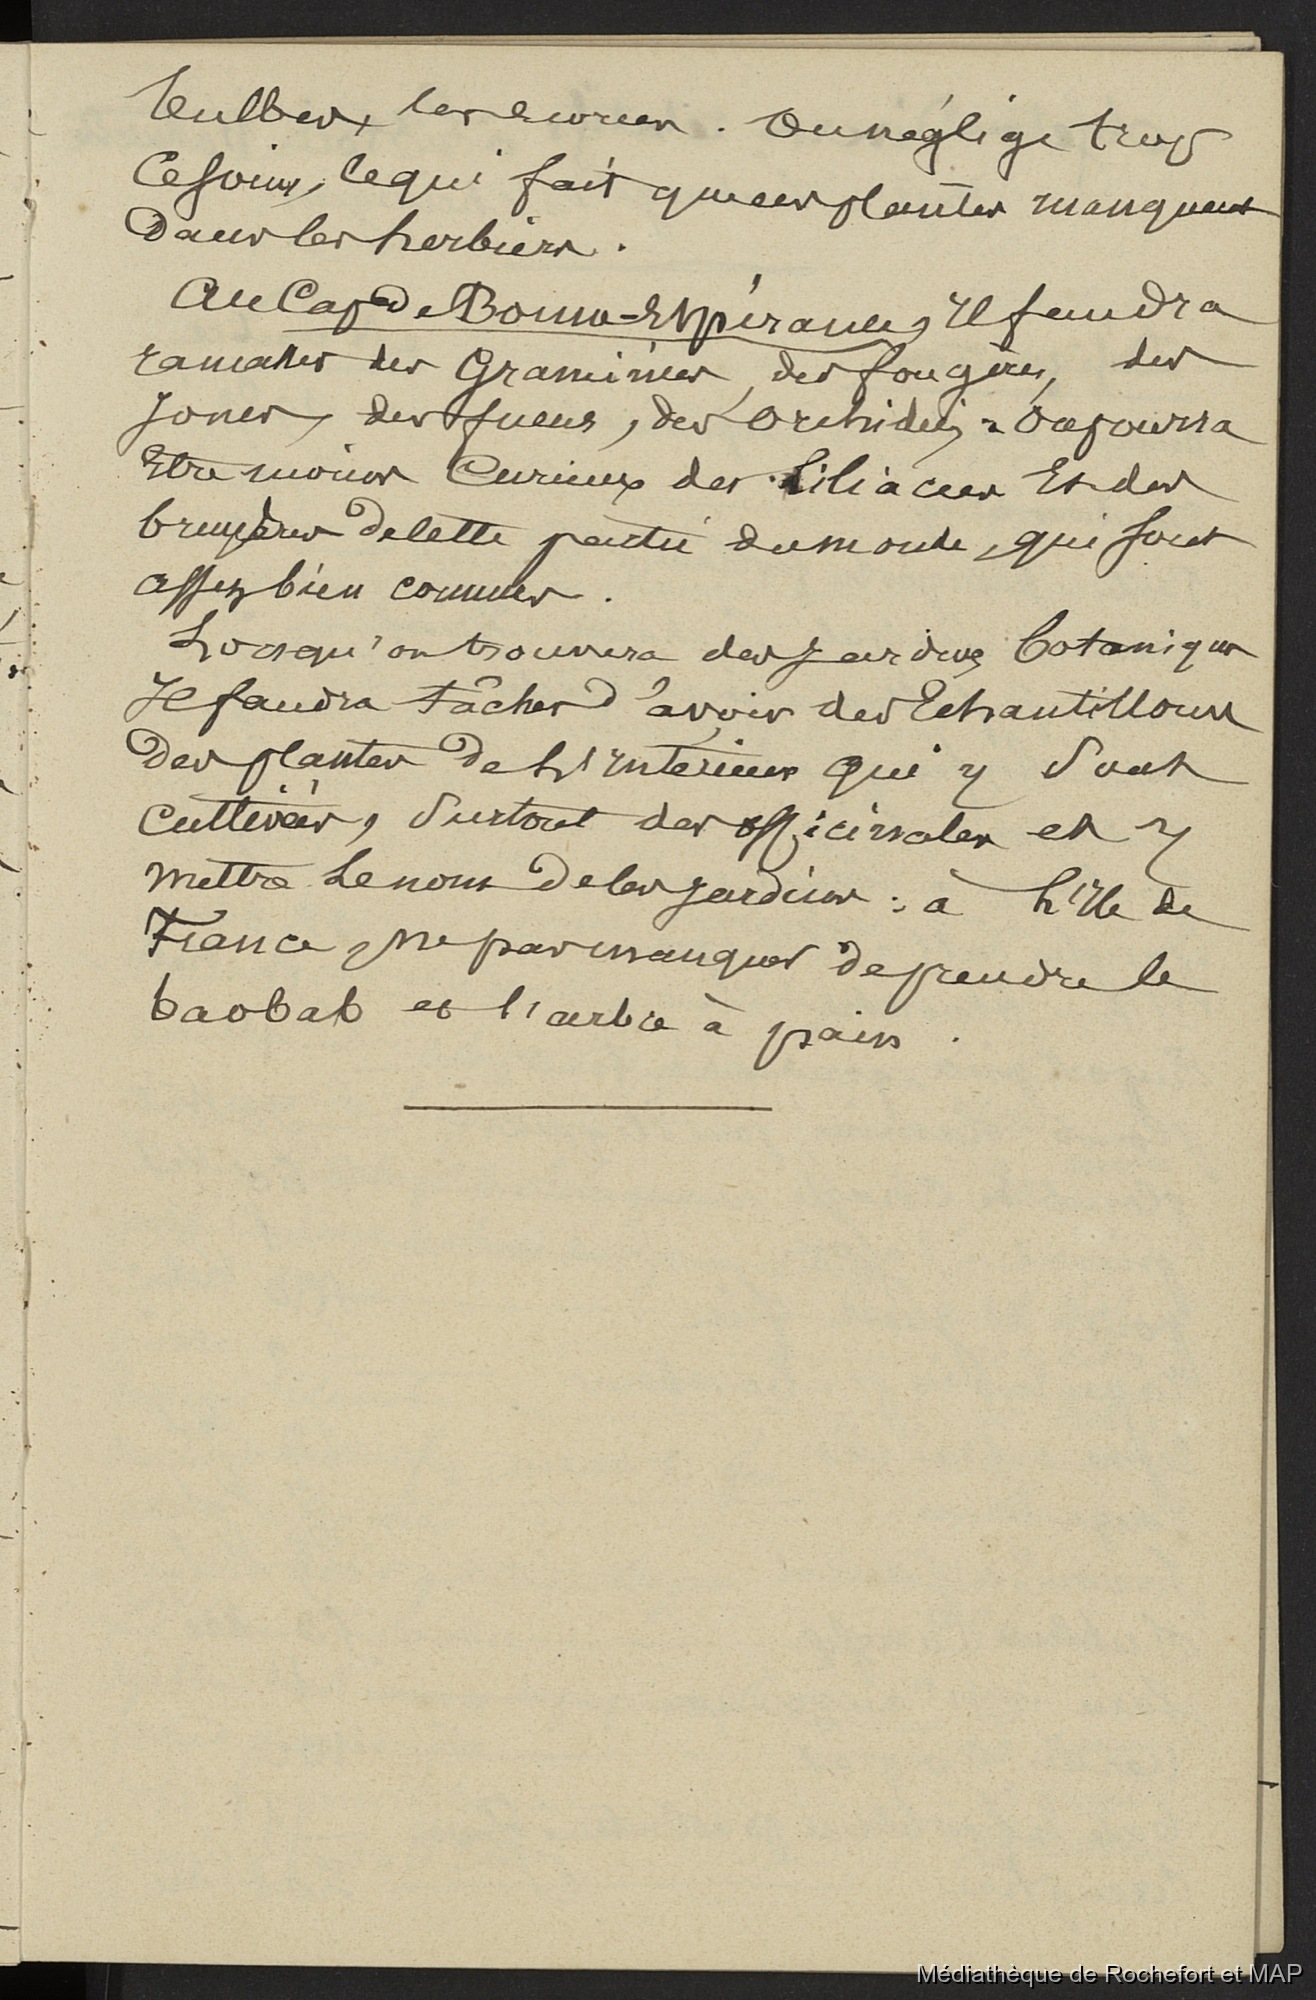 bulbes, les racines. On néglige trop
ce soin, ce qui fait que ces plantes manquent
dans les herbiers.
Au Cap de Bonne-Espérance, Il faudra
ramasser des Graminées, des fougères, des
joncs, des fucus, des Orchidées, on pourra
Etre moins Curieux des Liliacées Et des
bruyères de cette partie du monde, qui sont
assez bien connues.
Lorsqu'on trouvera des jardins botaniques
Il faudra tâcher d'avoir des Echantillons
des plantes de L'intérieur qui y sont
cultivées, Surtout des officinales et y
mettre Le nom de ces jardins : à L'Ile de
France, Ne pas manquer de prendre le
baobab et l'arbre à pain.
Médiathèque de Rochefort et MAP